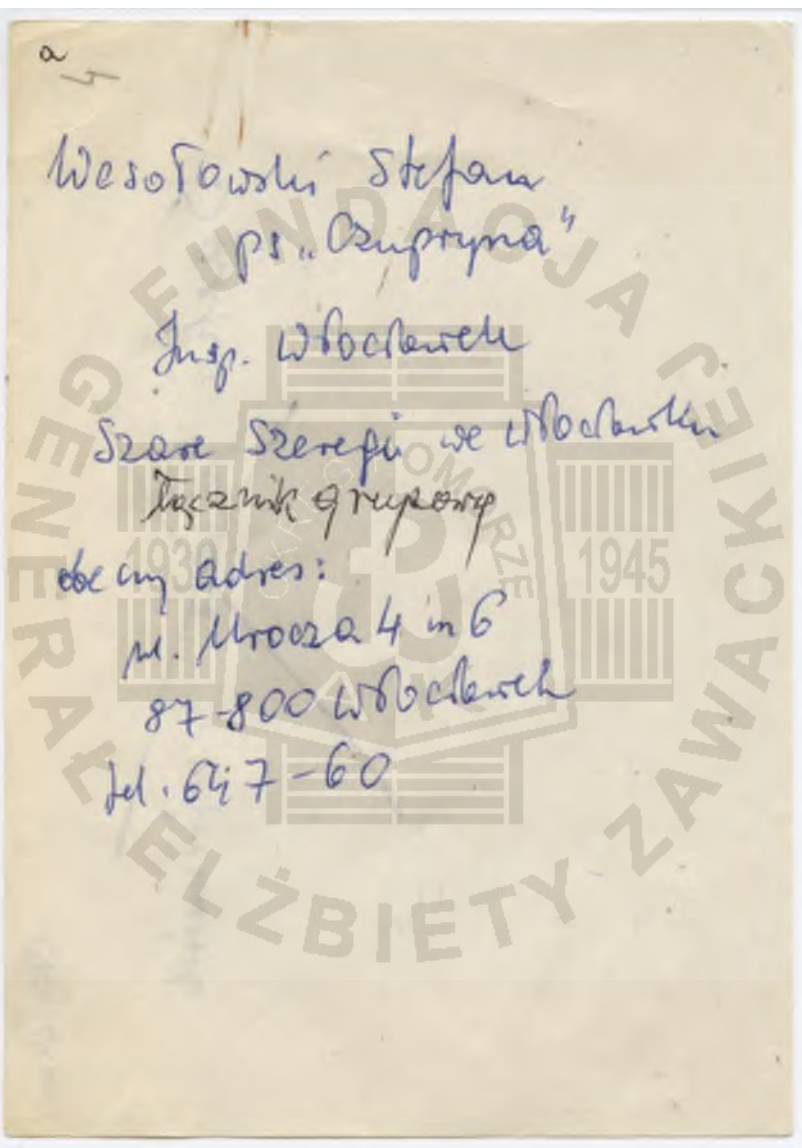 a
Wesołowski Stefan
ps „Czupryna"
Insp. Włocławek
Szare Szeregi we Włocławku
łącznik grupowy
obecny adres:
ul. Mrocza 4 m 6
87-800 Włocławek
tel. 647-60
FUNDACJA GENERAŁ ELŻBIETY ZAWACKIEJ
OKRĘG POMORZE
1939 1945
AK